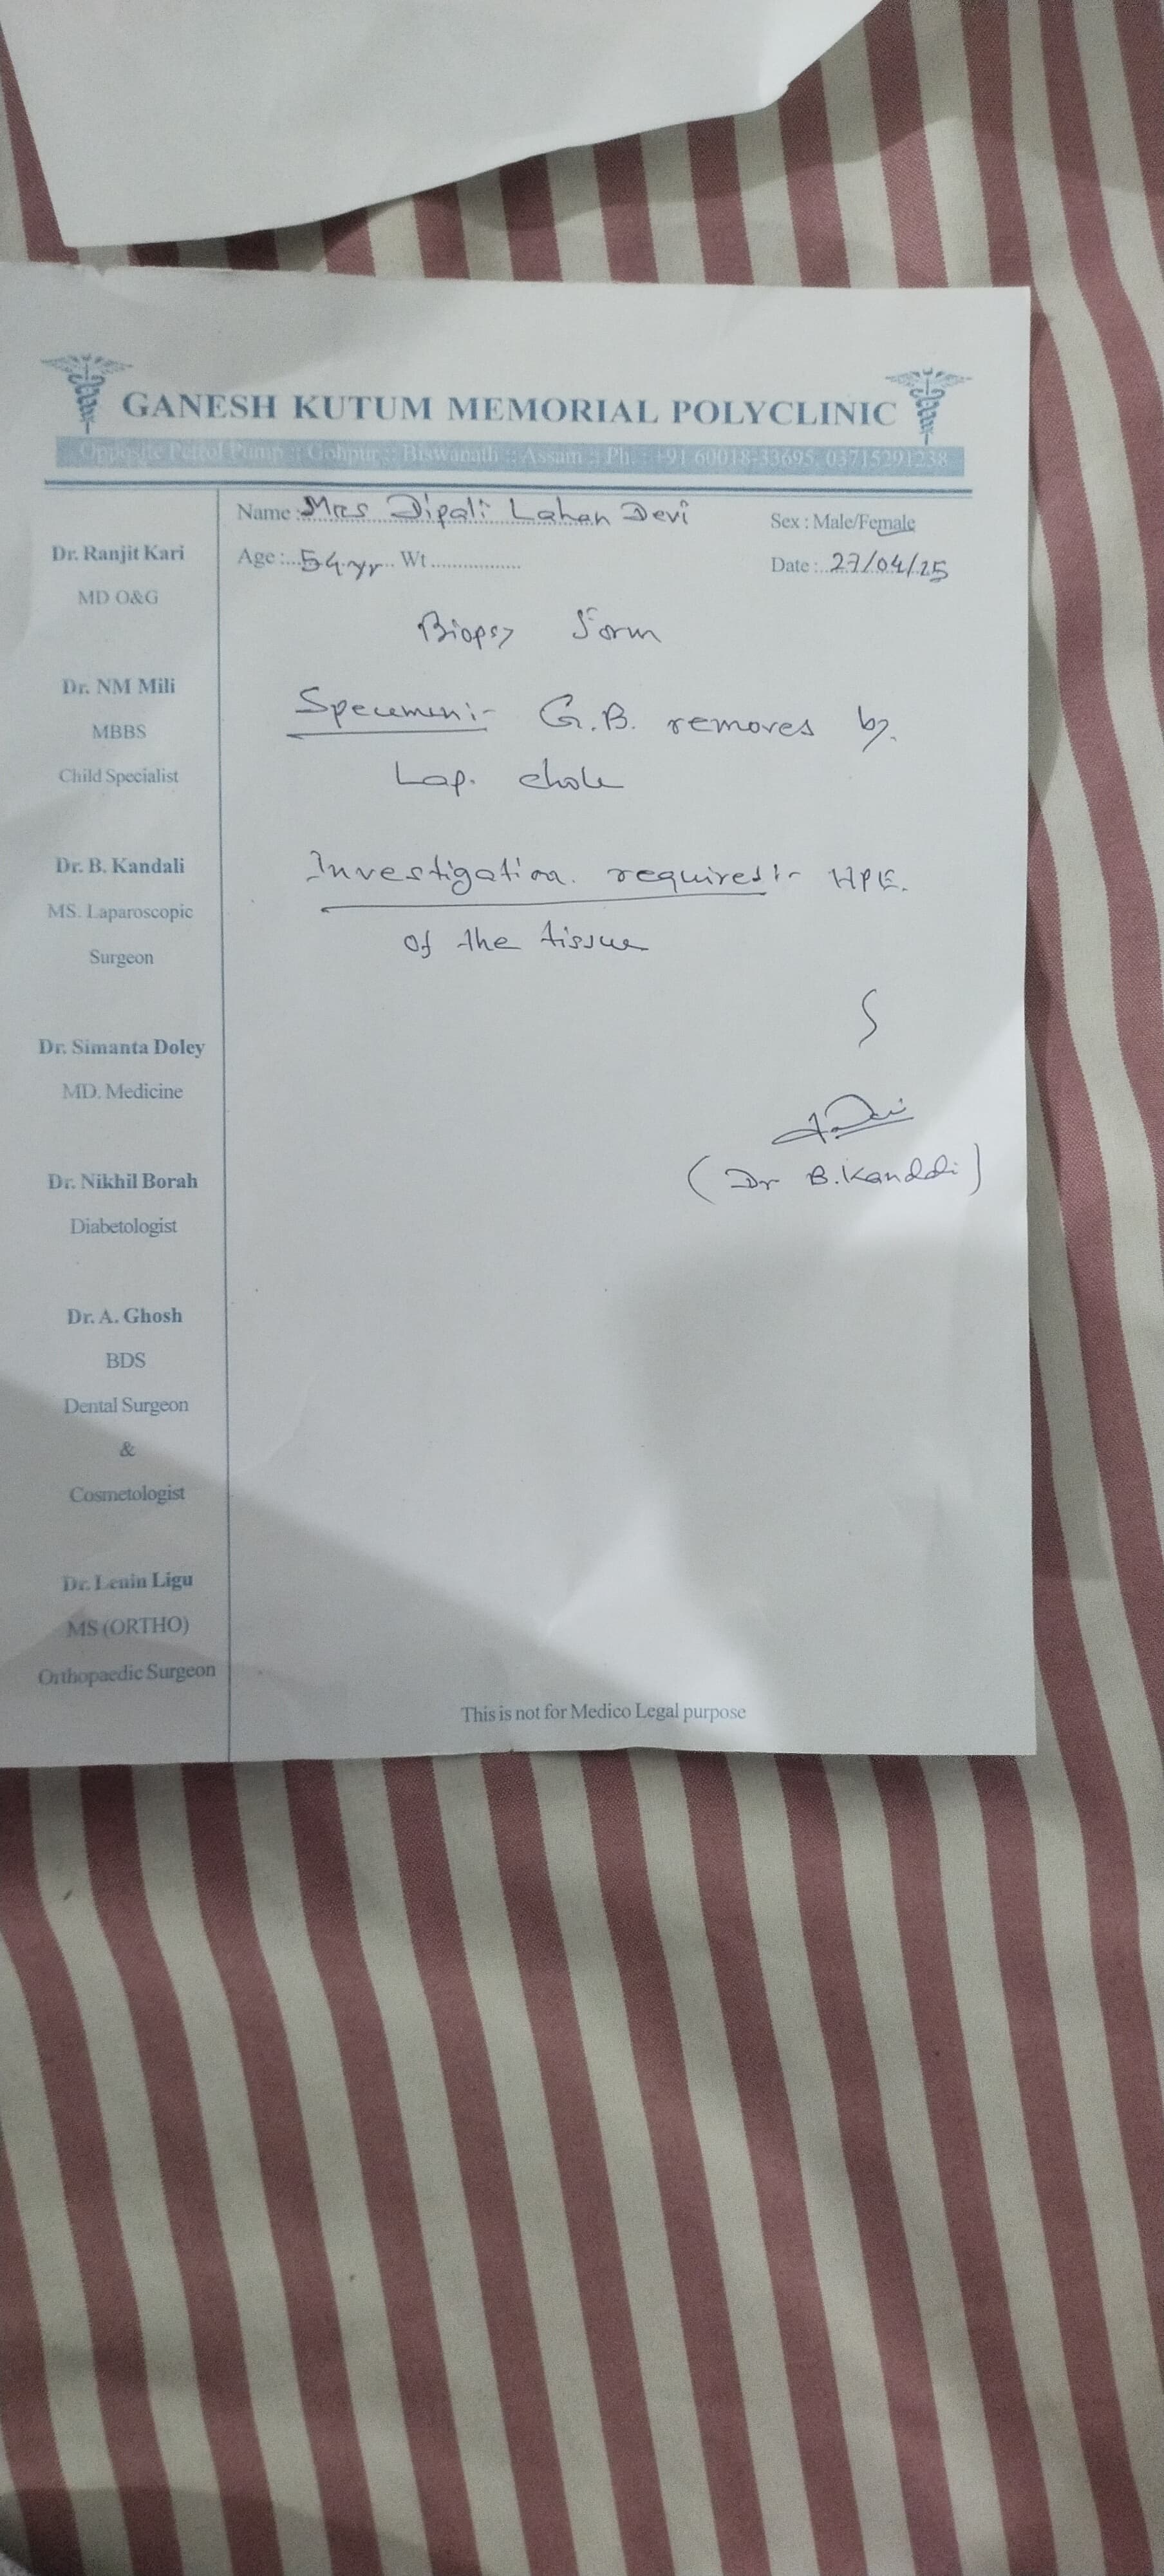 GANESH KUTUM MEMORIAL POLYCLINIC
Opposite Petrol Pump :: Gohpur :: Biswanath :: Assam :: Ph. : +91 60018-33695, 03715291238
Name : Mrs Dipali Lahan Devi
Sex : Male/Female
Age : 54 yr Wt
Date : 27/04/25
Dr. Ranjit Kari
MD O&G
Dr. NM Mili
MBBS
Child Specialist
Dr. B. Kandali
MS. Laparoscopic
Surgeon
Dr. Simanta Doley
MD. Medicine
Dr. Nikhil Borah
Diabetologist
Dr. A. Ghosh
BDS
Dental Surgeon
&
Cosmetologist
Dr. Lenin Ligu
MS (ORTHO)
Orthopaedic Surgeon
Biopsy Form
Specimen:- G.B. removes by
Lap. chole
Investigation required:- HPE.
of the tissue
(Dr B. Kandali)
This is not for Medico Legal purpose